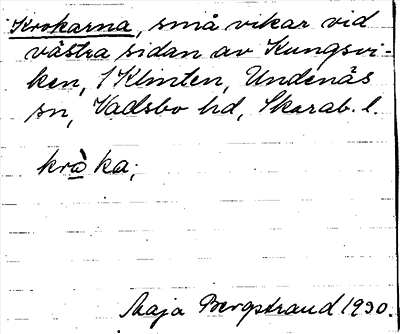 Krokarna, små vikar vid
västra sidan av Kungsvi-
ken, 1 Klinten, Undenäs
sn, Vadsbo hd, Skarab. l.
kròka;
Maja Bergstrand 1930.